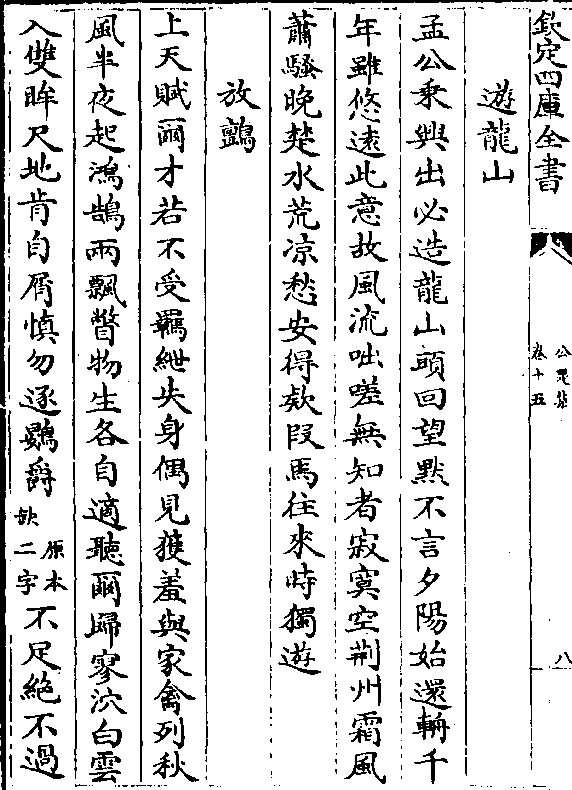 欽定四庫全書
公是集
卷十五
八
遊龍山
孟公乗興出必造龍山頭回望默不言夕陽始還輈千
年雖悠逺此意故風流咄嗟無知者寂寞空荆州霜風
蕭騷晚楚水荒凉愁安得欵段馬往來時獨遊
放鸇
上天賦爾才若不受羈紲失身偶見獲羞與家禽列秋
風半夜起鴻鵠兩飄瞥物生各自適聽爾歸寥泬白雲
入雙眸尺地肯自屑慎勿逐鷃爵原本缺二字不足絶不過